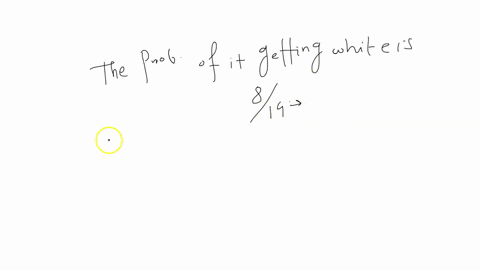 The Prob. of it getting white is
8/19